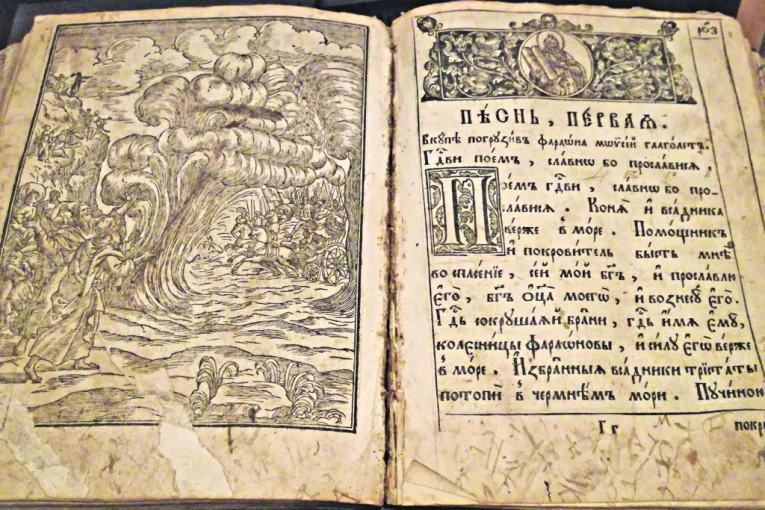 рѯз
ПѢСНЬ, ПЕРВАѦ.
Вкꙋпѣ погрꙋзивъ фараѡна мѡѷсей глаголетъ.
Гдⷭ҇ви поемъ, славнѡ бо прославися.
Пое́мъ гдⷭ҇ви, сла́внѡ бо про-
сла́вися. Конѧ̀ и҆ вса́дника
ве́рже в мо́ре. Помо́щникъ
и҆ покрови́тель бы́сть мнѣ̀
во спасе́нїе, се́й мо́й бг҃ъ, и҆ просла́влю
є҆го̀, бг҃ъ ѻ҆ц҃а̀ моегѡ̀, и҆ вознесꙋ̀ є҆го̀.
Гдⷭ҇ь сокрꙋша́ѧй бра́ни, гдⷭ҇ь и҆́мѧ є҆мꙋ̀,
колесни́цы фараѡ́новы, и҆ си́лꙋ є҆гѡ̀ ве́рже
в мо́ре. И҆збра́нныѧ вса́дники трїста́ты
потопѝ в чермнѣ́мъ мо́ри. Пꙋчи́ною
Гг
покры